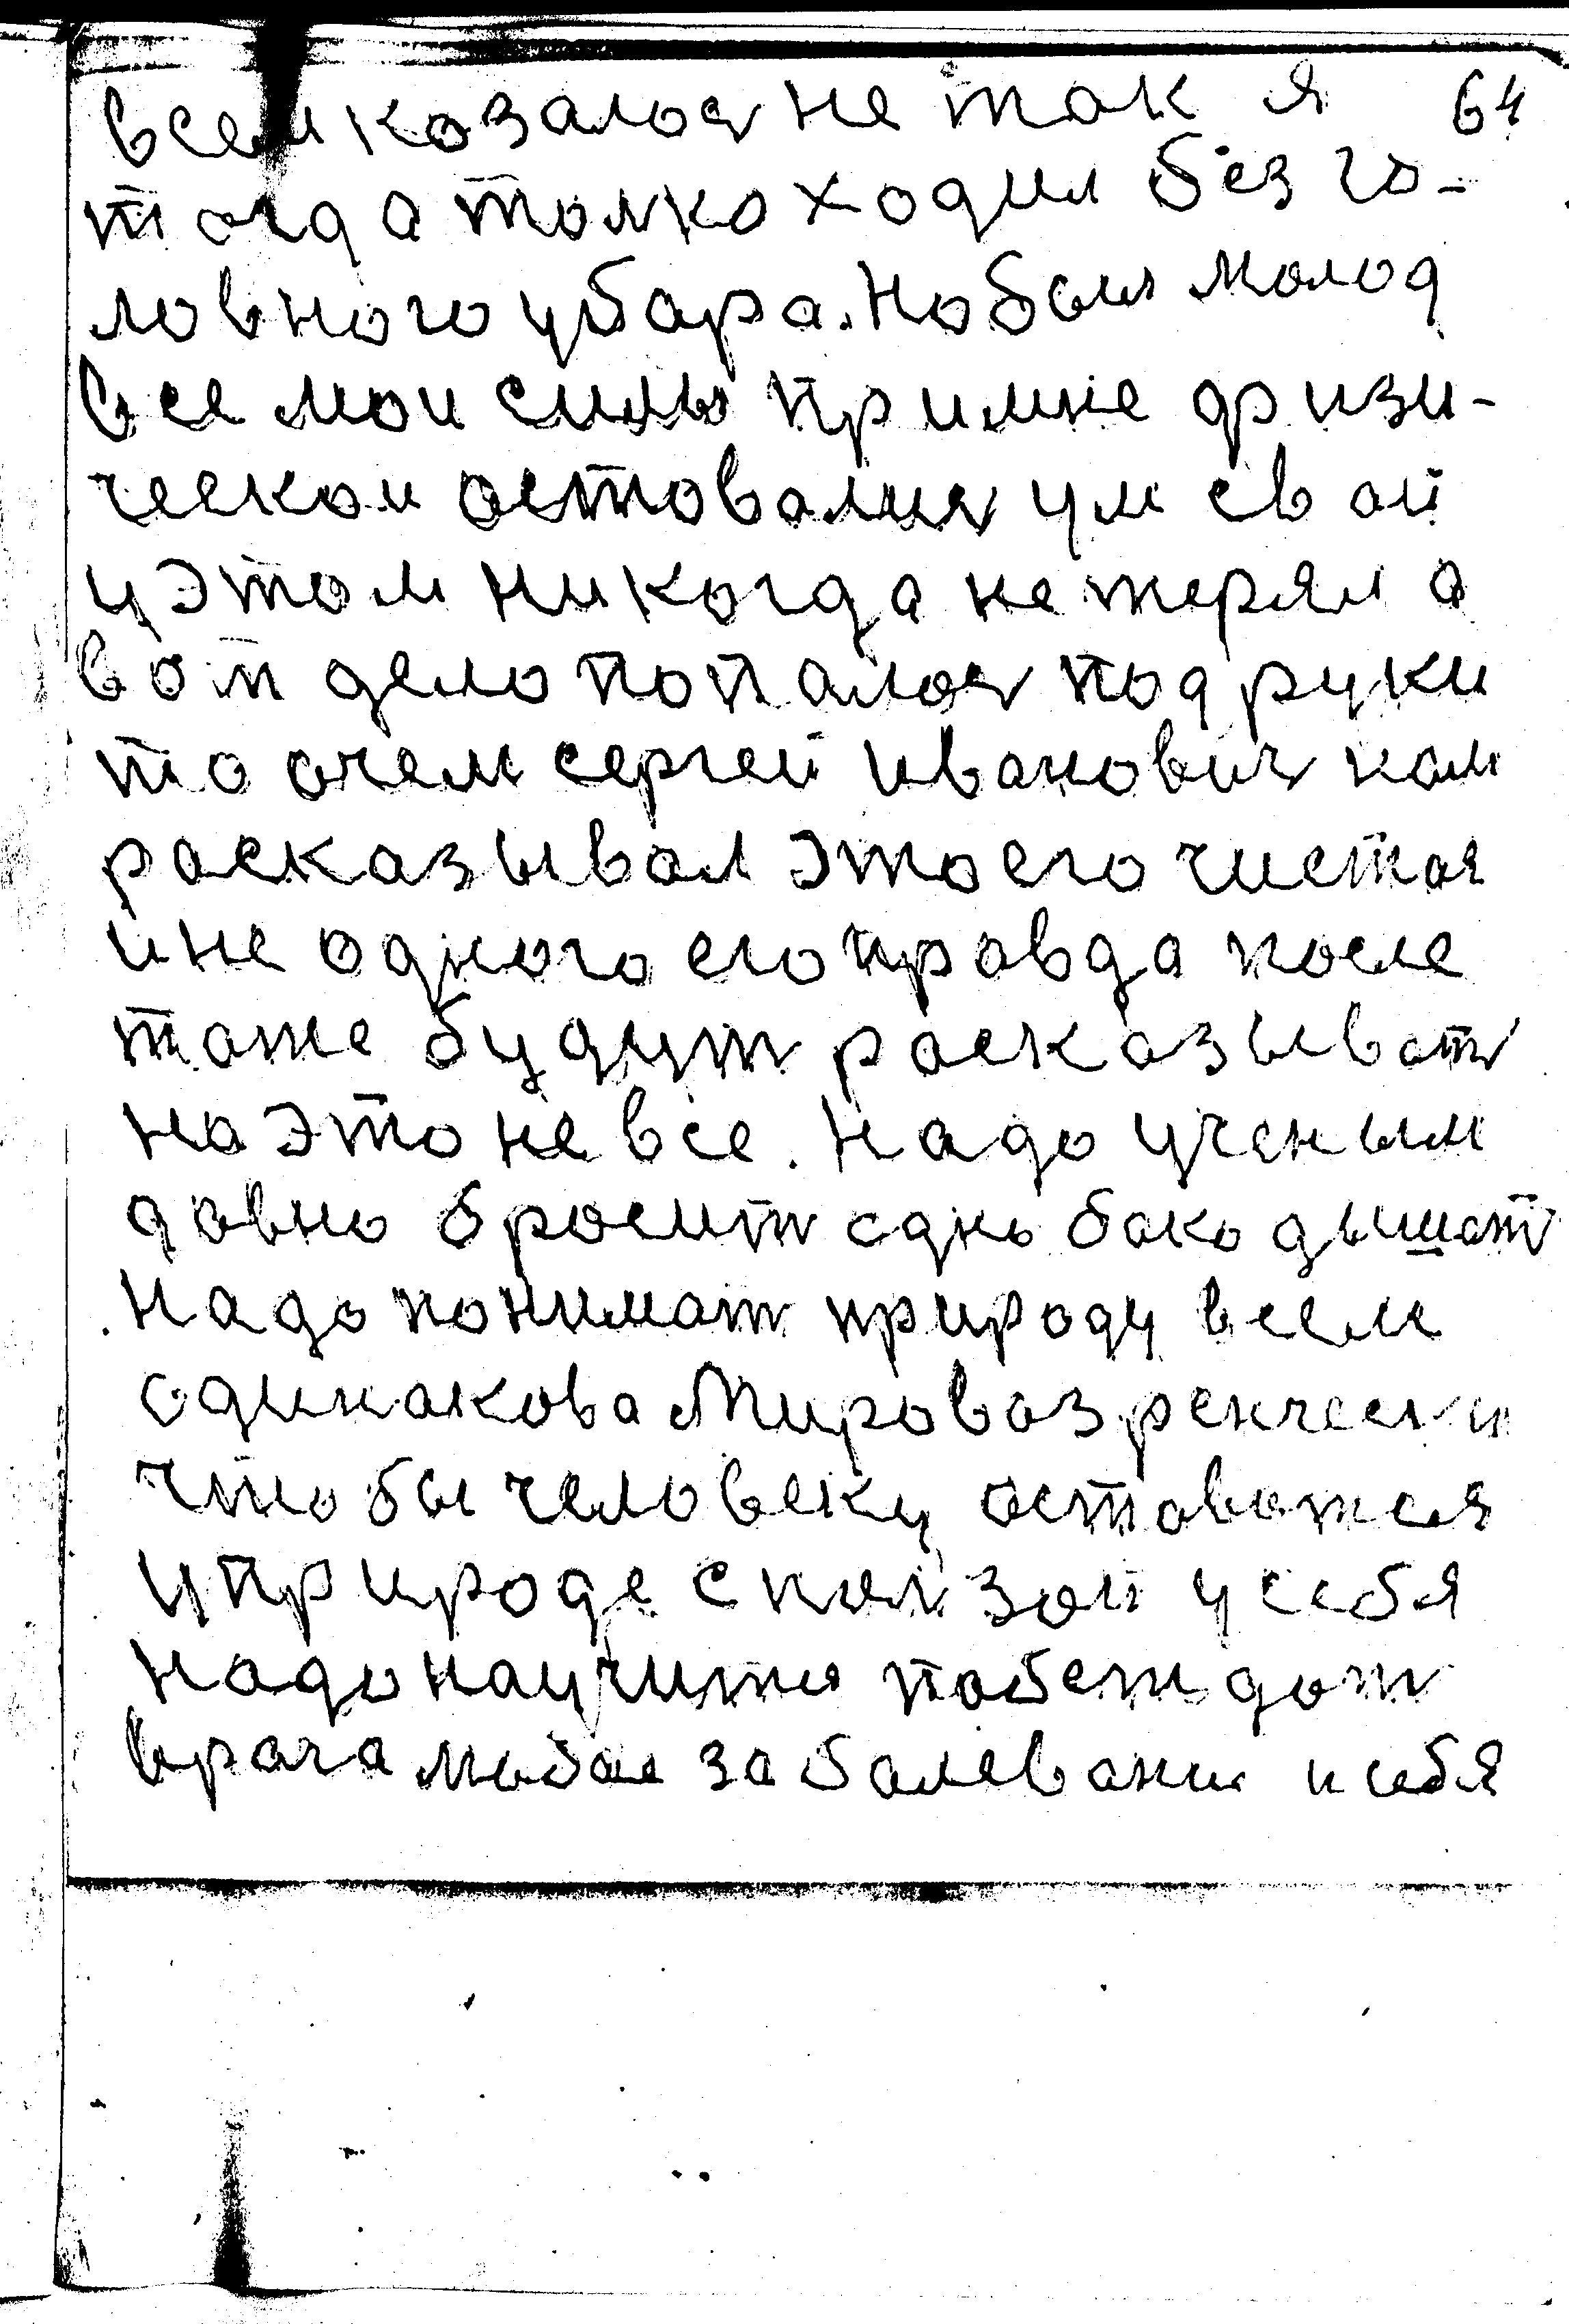 всем козалося не так я 64
тогда толко ходил без го-
ловного убара. Но был молод
все мои силы при мне физи-
ческои оставалися ум свой
у этом никогда не терял а
вот дело попалося под руки
то о чем сергей иванович нам
расказывал это его чистая
и не одного его правда после
тоже будут расказывать
на это не все. Надо ученым
давно бросить однобако дышать
надо понимать природу всем
одинакова Мировазренчески
чтобы человеку оставатся
у природе с ползой у себя
надо научится побеждать
врага любое заболевание у себя